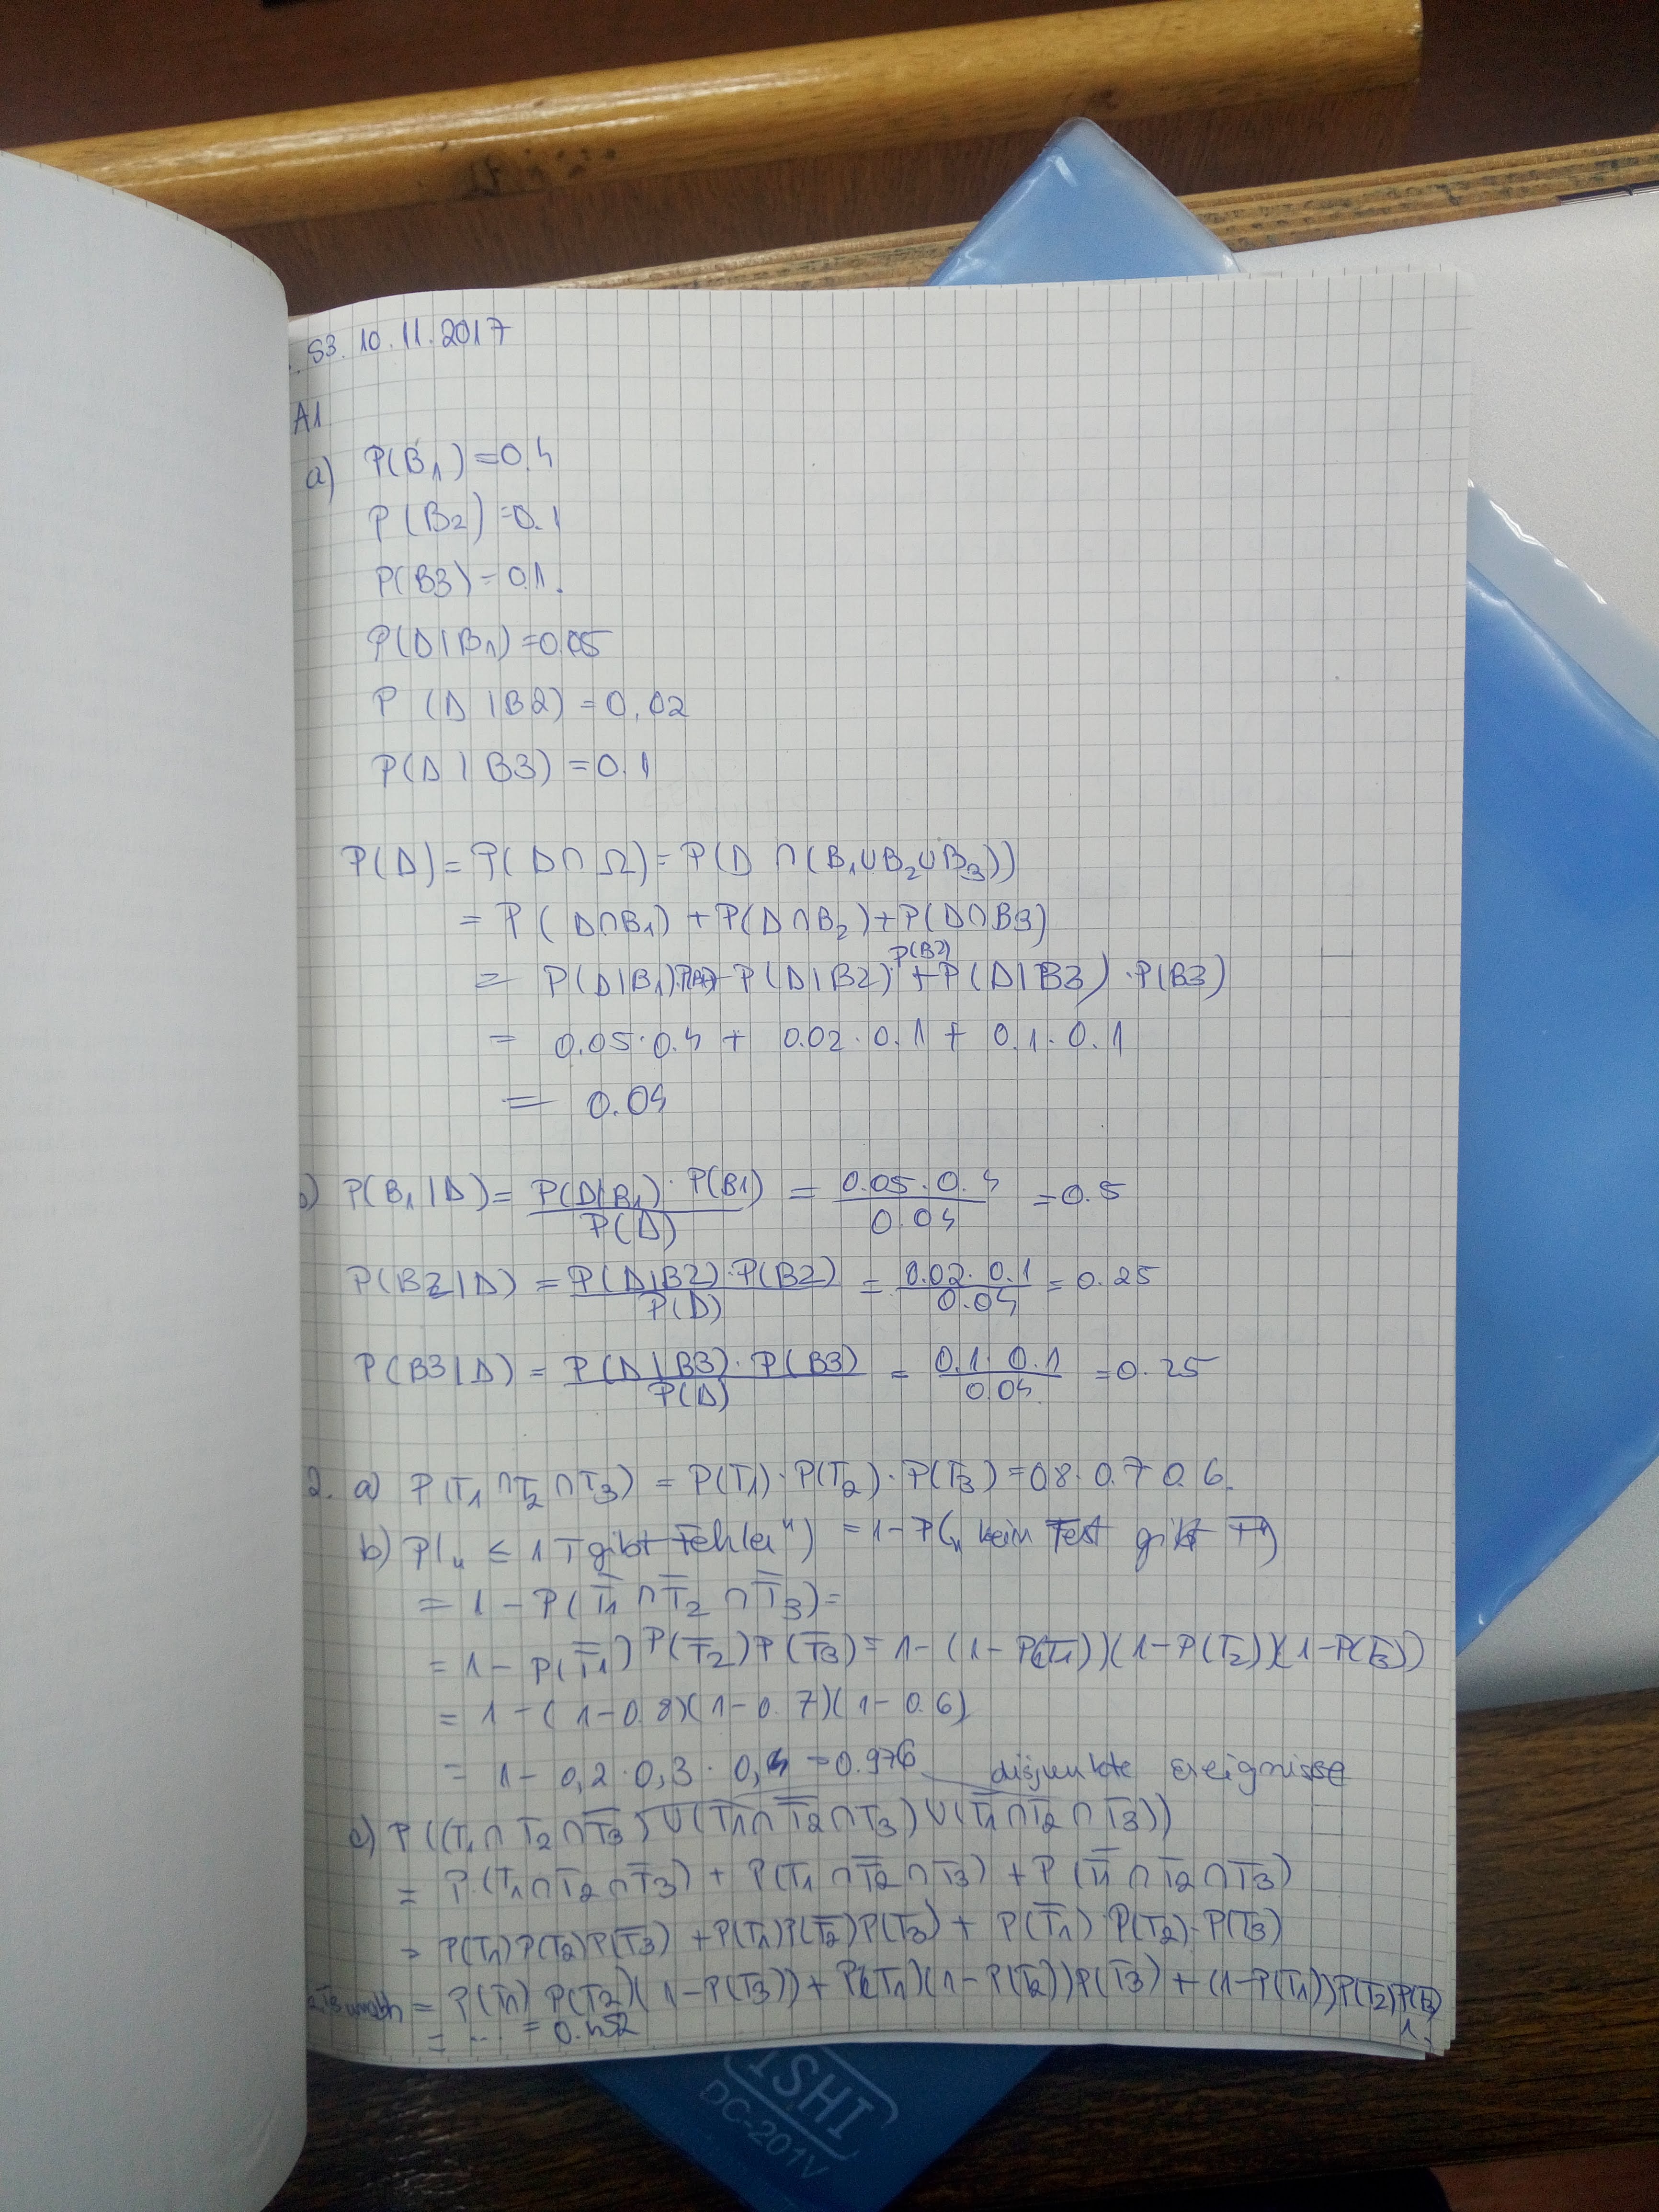 S3. 10.11.2017
A1
a) P(B₁)=0,4
P(B2)=0.1
P(B3)=0.1.
P(D|B1)=0.05
P(D|B2)=0,02
P(D|B3)=0.1
P(D)=P(D∩Ω)=P(D∩(B₁∪B₂∪B₃))
=P(D∩B₁)+P(D∩B₂)+P(D∩B3)
P(B2)
= P(D|B₁) P(D|B2)· +P(D|B3)·P(B3)
= 0.05·0.4 + 0.02·0.1 + 0.1·0.1
= 0.04
b) P(B₁|D)= P(D|B₁)·P(B1) / P(D) = 0.05·0.4 / 0.04 =0.5
P(B2|D) = P(D|B2)·P(B2) / P(D) = 0.02·0.1 / 0.04 = 0.25
P(B3|D) = P(D|B3)·P(B3) / P(D) = 0.1·0.1 / 0.04 =0.25
2. a) P(T₁∩T₂∩T₃) = P(T1)·P(T₂)·P(T₃)=0.8·0.7·0.6.
b) P(„ ≤ 1 T gibt Fehler") = 1-P(„ kein Test gibt F")
= 1-P(T̅₁∩T̅₂∩T̅₃)=
=1-P(T̅₁)P(T̅₂)P(T̅₃)=1-(1-P(T₁))(1-P(T₂))(1-P(T₃))
= 1-(1-0.8)(1-0.7)(1-0.6)
= 1-0,2·0,3·0,4=0.976 disjunkte Ereignisse
c) P((T₁∩T₂∩T̅₃)∪(T₁∩T̅₂∩T₃)∪(T̅₁∩T₂∩T₃))
= P(T₁∩T₂∩T̅₃)+P(T₁∩T̅₂∩T₃)+P(T̅₁∩T₂∩T₃)
= P(T₁)P(T₂)P(T̅₃)+P(T₁)P(T̅₂)P(T₃)+P(T̅₁)·P(T₂)·P(T₃)
= P(T₁)P(T₂)(1-P(T₃))+P(T₁)(1-P(T₂))P(T₃)+(1-P(T₁))P(T₂)P(T₃)
= ... = 0.452
ISHI
DC-201V